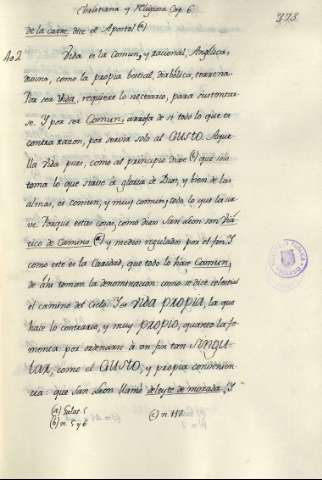 Christiana y Religiosa Cap. 6
de la carne, dice el Apostol (a)
402 Vida es la Comun, y racional, Angelica,
divina, como la propia bestial, diabolica, terrena.
Por ser Vida, requiere lo necesario, para sustentar-
se. Y por ser Comun, arroja de si todo lo que es
contra razon, por servir solo al GUSTO. Aque-
lla Vida pues, como al principio dixe (b) que solo
toma lo que sirve à gloria de Dios, y bien de las
almas, es comun, y muy comun, todo lo que la sir-
ve. Porque estas cosas, como dixo San Leon son Viá-
tico de Camino (c) y medios regulados por el fin. Y
como este es la Caridad, que todo lo hace Comun,
de ahi toman la denominacion como se dice celestial
el camino del Cielo. Y es VIDA PROPIA, la que
hace lo contrario, y muy PROPIO, quanto la fo-
menta por ordenarse à un fin tan SINGU-
LAR, como el GUSTO, y propia convenien-
cia que San Leon llamó deleyte de morada. Y
(a) Galat. 5
(b) n. 5 y 6
(c) n. 117